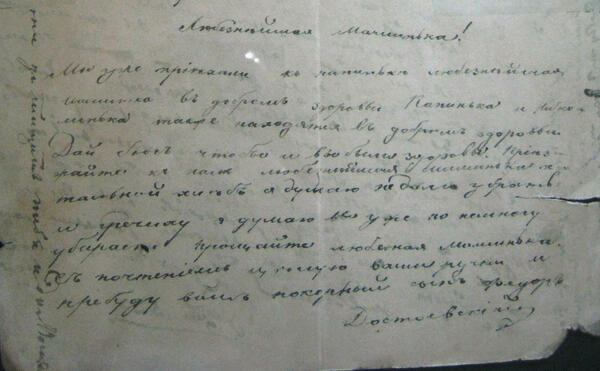 Любезнѣйшая Маминька!
Мы уже пріѣхали къ папинькѣ любезнѣйшая
маминька въ добромъ здоровьи Папинька и Нико-
линька также находятся въ добромъ здоровьи
Дай богъ чтобы и вы были здоровы. Пріѣз-
жайте къ намъ любезнѣйшая маминька
хлѣбъ я думаю не долго убрать
и гречиху я думаю вы уже по немногу
убираете Прощайте любезная маминька
съ почтеніемъ цѣлую ваши ручки и
пребуду вамъ покорный сынъ Федоръ
Достоевскій